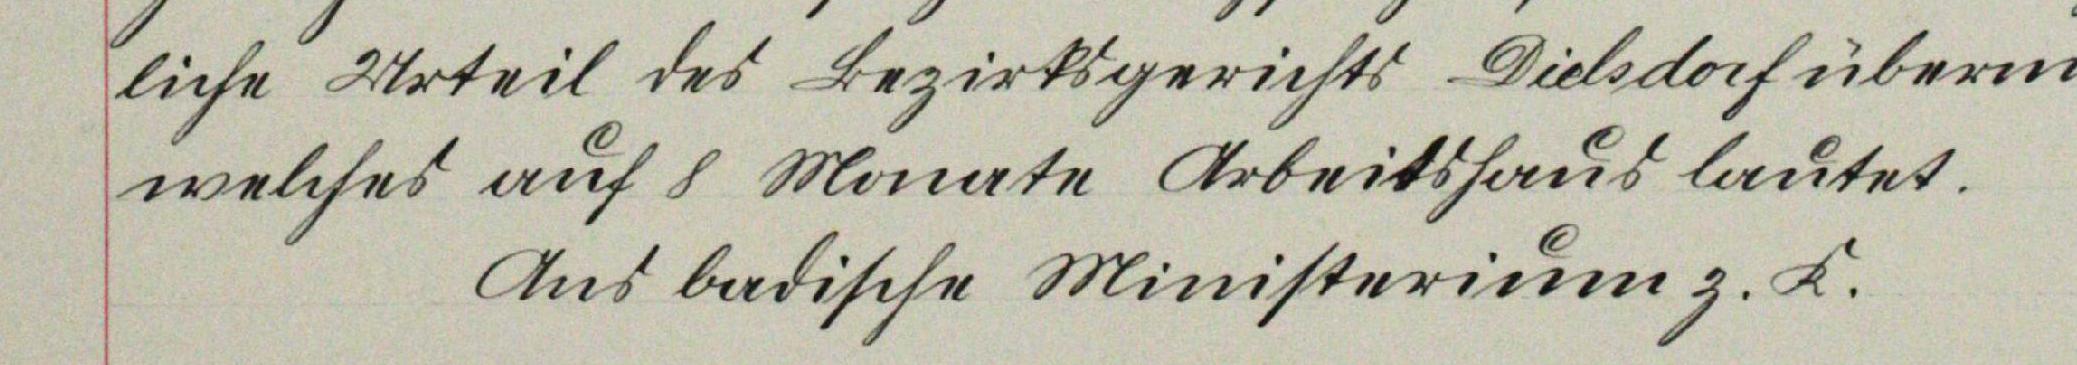 liche Urteil des Bezirksgerichts Dielsdorf überm
welches auf 8 Monate Arbeitshaus lautet.
Ans badische Ministerium z. K.